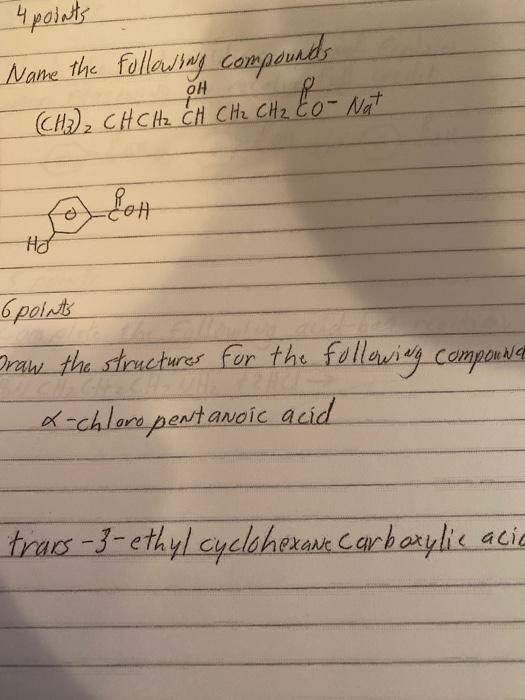 4 points
Name the following compounds
OH
O
(CH3)2 CHCH2 CH CH2 CH2 CO- Na+
O
COH
HO
6 points
Draw the structures for the following compound
α-chloro pentanoic acid
trans-3-ethyl cyclohexane carboxylic acid